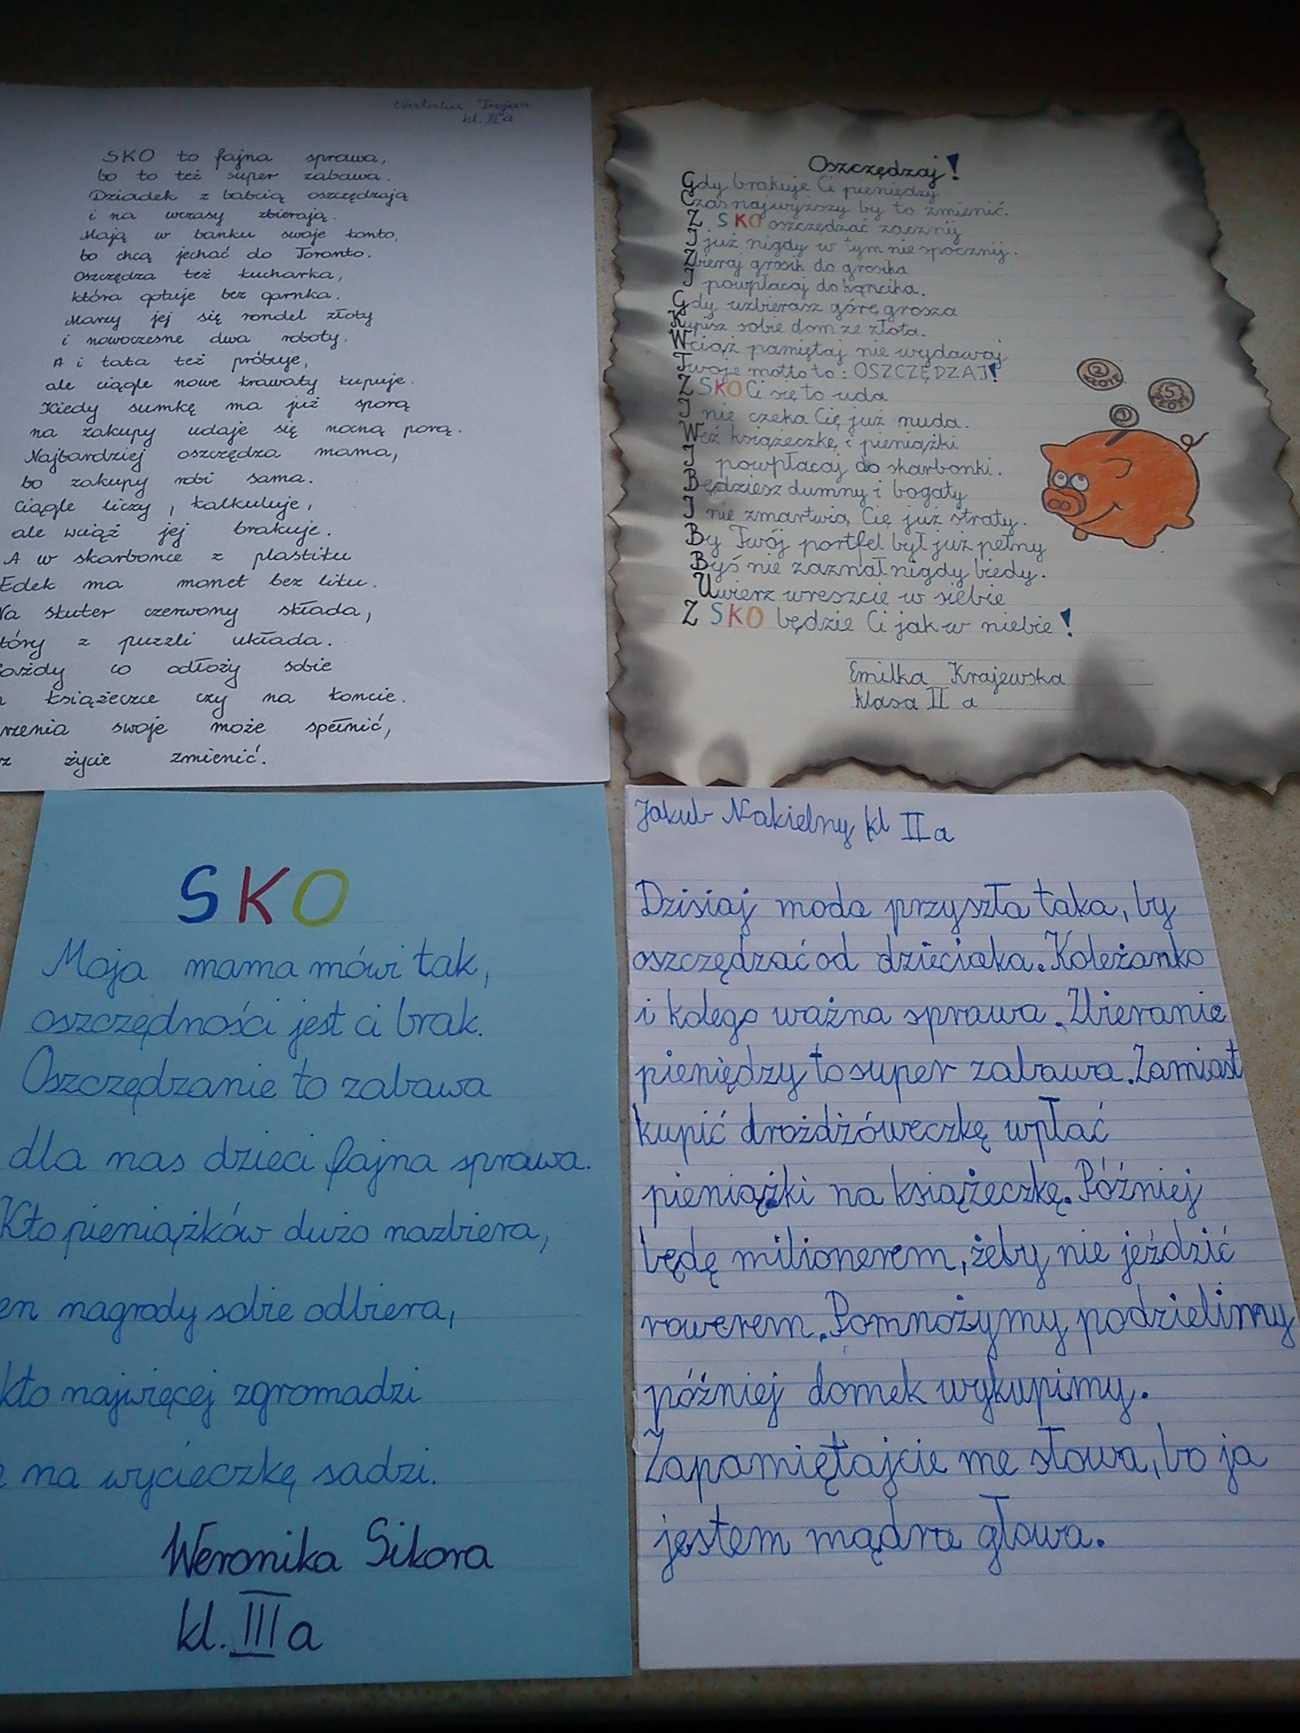 Trojan
kl. IIa
SKO to fajna sprawa,
bo to też super zabawa.
Dziadek z babcią oszczędzają
i na wczasy zbierają.
Mają w banku swoje konto,
bo chcą jechać do Toronto.
Oszczędza też kucharka,
która gotuje bez garnka.
Marzy jej się rondel złoty
i nowoczesne dwa roboty.
A i tata też próbuje,
ale ciągle nowe krawaty kupuje.
Kiedy sumkę ma już sporą
na zakupy udaje się nocną porą.
Najbardziej oszczędza mama,
bo zakupy robi sama.
Ciągle liczy, kalkuluje,
ale wciąż jej brakuje.
A w skarbonce z plastiku
Edek ma monet bez liku.
Na skuter czerwony składa,
tóry z puzzli układa.
ażdy co odłoży sobie
książeczce czy na koncie.
rzenia swoje może spełnić,
z życie zmienić.
Oszczędzaj!
Gdy brakuje Ci pieniędzy
Czas najwyższy by to zmienić.
Z SKO oszczędzać zacznij
I już nigdy w tym nie spocznij.
Zbieraj grosik do grosika
I powpłacaj do kącika.
Gdy uzbierasz górę grosza
Kupisz sobie dom ze złota.
Wciąż pamiętaj nie wydawaj
Twoje motto to: OSZCZĘDZAJ!
Z SKO Ci się to uda
I nie czeka Cię już nuda.
Weź książeczkę i pieniążki
I powpłacaj do skarbonki.
Będziesz dumny i bogaty
I nie zmartwią Cię już straty.
By Twój portfel był już pełny
Byś nie zaznał nigdy biedy.
Uwierz wreszcie w siebie
Z SKO będzie Ci jak w niebie!
Emilka Krajewska
klasa II a
2
ZŁOTE
5
ZŁOTY
1
SKO
Moja mama mówi tak,
oszczędności jest ci brak.
Oszczędzanie to zabawa
dla nas dzieci fajna sprawa.
Kto pieniążków dużo nazbiera,
en nagrody sobie odbiera,
kto najwięcej zgromadzi
na wycieczkę sadzi.
Weronika Sikora
kl. IIIa
Jakub Nakielny kl IIa
Dzisiaj moda przyszła taka, by
oszczędzać od dzieciaka. Koleżanko
i kolego ważna sprawa. Zbieranie
pieniędzy to super zabawa. Zamiast
kupić drożdżóweczkę wpłać
pieniążki na książeczkę. Później
będę milionerem, żeby nie jeździć
rowerem. Pomnożymy podzielimy
później domek wykupimy.
Zapamiętajcie me słowa, bo ja
jestem mądra głowa.